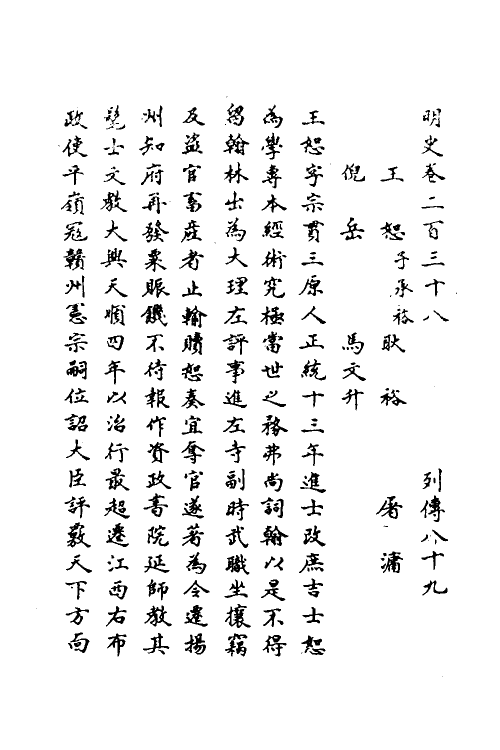 明史卷二百三十八　列傳八十九
王恕子承裕　耿裕　屠滽
倪岳　馬文升
王恕字宗貫三原人正統十三年進士改庶吉士恕
為學專本經術究極當世之務弗尚詞翰以是不得
留翰林出為大理左評事進左寺副時武職坐攘竊
及盜官畜產者止輸贖恕奏宜奪官遂著為令遷揚
州知府再發粟賑饑不待報作資政書院延師教其
髦士文教大興天順四年以治行最超遷江西右布
政使平嶺寇贛州憲宗嗣位詔大臣評覈天下方面